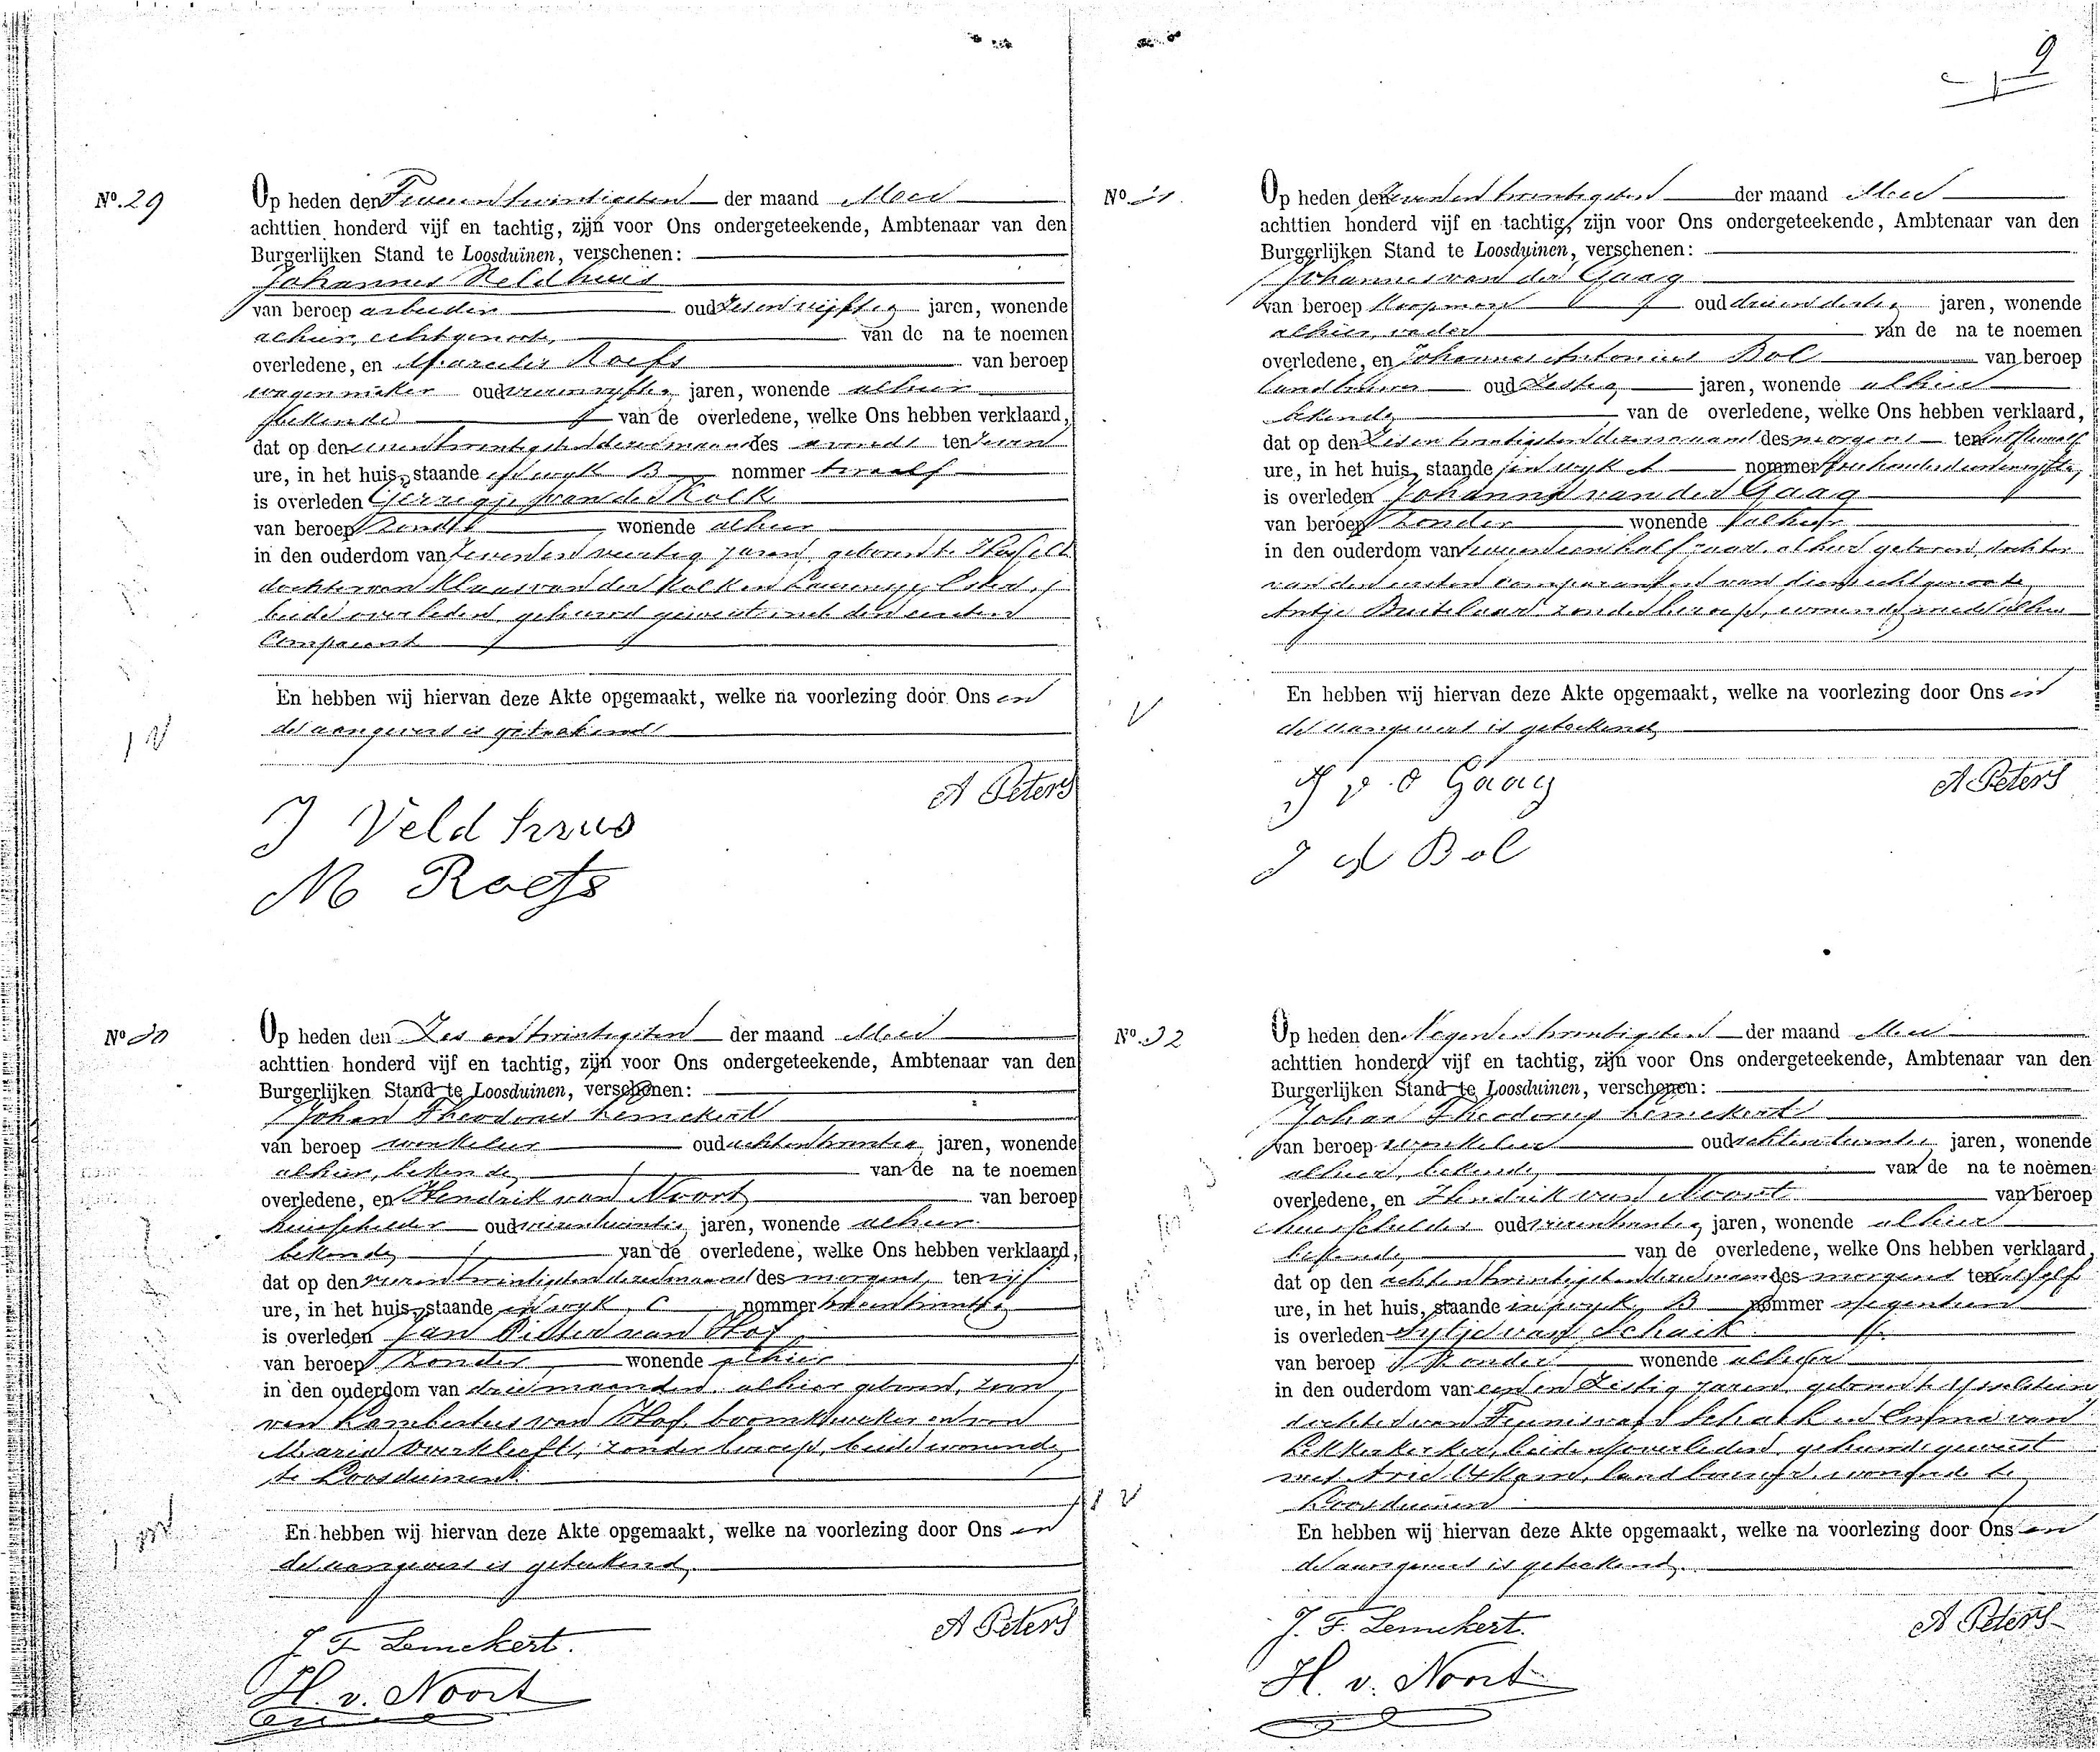 9
No. 29
Op heden den Tweeentwintigsten der maand Mei
achttien honderd vijf en tachtig, zijn voor Ons ondergeteekende, Ambtenaar van den
Burgerlijken Stand te Loosduinen, verschenen:
Johannes Veldhuis
van beroep arbeider oud zesenvijftig jaren, wonende
alhier, echtgenoot, van de na te noemen
overledene, en Marcelis Roefs van beroep
wagenmaker oud jaren, wonende alhier
bekende van de overledene, welke Ons hebben verklaard,
dat op den eenentwintigsten dezer maand des avonds ten zeven
ure, in het huis, staande in wijk B nommer twaalf
is overleden Gerrigje van der Kolk
van beroep zonder wonende alhier
in den ouderdom van jaren, geboren te Hasselt
dochter van Klaas van der Kolk en
beide overleden, gehuwd geweest met den eersten
Comparant
En hebben wij hiervan deze Akte opgemaakt, welke na voorlezing door Ons en
de aangevers is geteekend
A Peters
J Veldhuis
M Roefs
No 30
Op heden den Zes en twintigsten der maand Mei
achttien honderd vijf en tachtig, zijn voor Ons ondergeteekende, Ambtenaar van den
Burgerlijken Stand te Loosduinen, verschenen:
Johan Theodorus Lemckert
van beroep winkelier oud achtentwintig jaren, wonende
alhier, bekende van de na te noemen
overledene, en Hendrik van Noort van beroep
huisschilder oud vierentwintig jaren, wonende alhier
bekende van de overledene, welke Ons hebben verklaard,
dat op den vierentwintigsten dezer maand des morgens ten vijf
ure, in het huis, staande in wijk C nommer
is overleden Jan Pieter van Hof
van beroep zonder wonende alhier
in den ouderdom van drie maanden, alhier geboren, zoon
van Lambertus van Hof, boomkweker en van
Maria zonder beroep, beide wonende
te Loosduinen
En hebben wij hiervan deze Akte opgemaakt, welke na voorlezing door Ons en
de aangevers is geteekend
A Peters
J. F. Lemckert.
H. v. Noort
No. 31
Op heden den zevenentwintigsten der maand Mei
achttien honderd vijf en tachtig, zijn voor Ons ondergeteekende, Ambtenaar van den
Burgerlijken Stand te Loosduinen, verschenen:
Johannes van der Gaag
van beroep Koopman oud drieendertig jaren, wonende
alhier, vader van de na te noemen
overledene, en Johannes Antonius Bol van beroep
landbouwer oud Zestig jaren, wonende alhier
bekende van de overledene, welke Ons hebben verklaard,
dat op den Zesentwintigsten dezer maand des morgens ten half twaalf
ure, in het huis, staande in wijk A nommer
is overleden Johanna van der Gaag
van beroep zonder wonende alhier
in den ouderdom van twee en een half jaar, alhier geboren, dochter
van den eersten comparant en van diens echtgenoote
Antje Buitelaar zonder beroep, wonende mede alhier
En hebben wij hiervan deze Akte opgemaakt, welke na voorlezing door Ons en
de aangevers is geteekend
A Peters
J v. d Gaag
J A Bol
No. 32
Op heden den Negenentwintigsten der maand Mei
achttien honderd vijf en tachtig, zijn voor Ons ondergeteekende, Ambtenaar van den
Burgerlijken Stand te Loosduinen, verschenen:
Johan Theodorus Lemckert
van beroep winkelier oud achtentwintig jaren, wonende
alhier, bekende van de na te noemen
overledene, en Hendrik van Noort van beroep
huisschilder oud vierentwintig jaren, wonende alhier
bekende van de overledene, welke Ons hebben verklaard,
dat op den achtentwintigsten dezer maand des morgens ten half elf
ure, in het huis, staande in wijk B nommer negentien
is overleden Sijtje van Schaik
van beroep zonder wonende alhier
in den ouderdom van een en Zestig jaren, geboren te
dochter van van Schaik en van
beiden overleden, gehuwd geweest
met Arie landbouwer, wonende te
Loosduinen
En hebben wij hiervan deze Akte opgemaakt, welke na voorlezing door Ons en
de aangevers is geteekend.
A Peters
J. F. Lemckert.
H. v. Noort